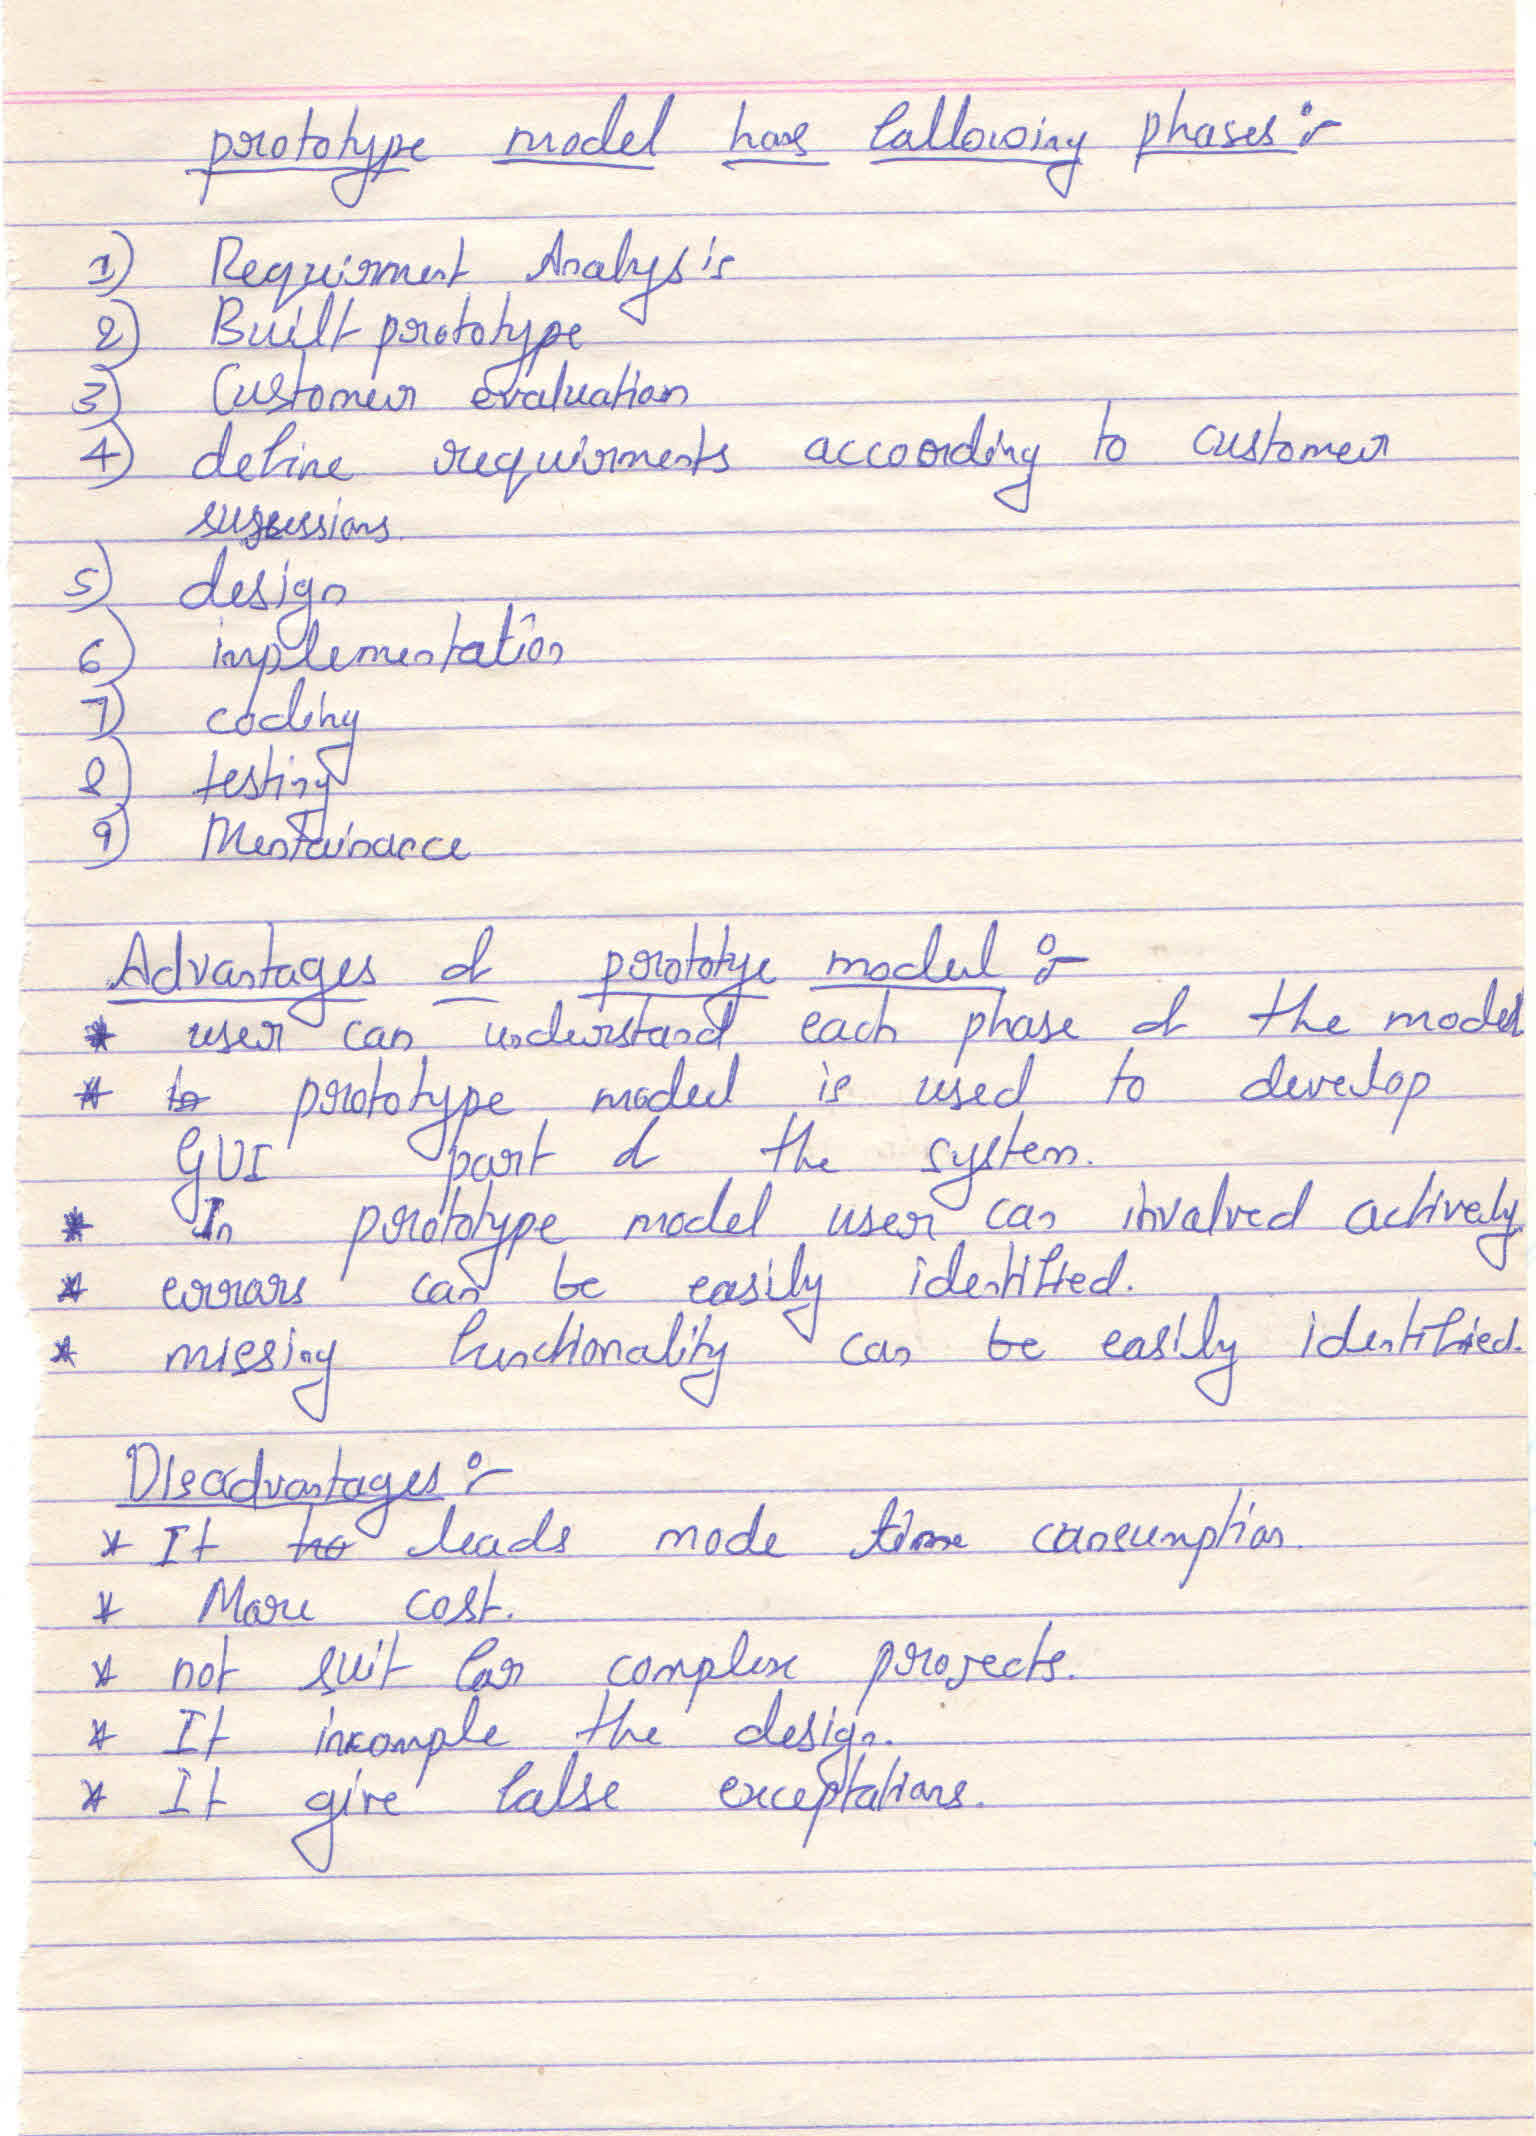 prototype model has following phases :-
1) Requirment Analysis
2) Built prototype
3) Customer evaluation
4) define requirments according to customer
suggessions.
5) design
6) implementation
7) coding
8) testing
9) Mentainance
Advantages of prototye model :-
* user can understand each phase of the model
* to prototype model is used to develop
GUI part of the system.
* In prototype model user can invalved actively
* errors can be easily identified.
* missing functionality can be easily identified.
Disadvantages :-
* It leads mode time consumption.
* More cost.
* not suit for complex projects.
* It incomple the design.
* It give false exceptations.